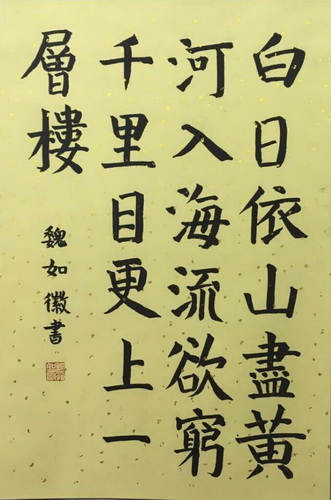 白日依山盡黃
河入海流欲窮
千里目更上一
層樓
魏如徽書